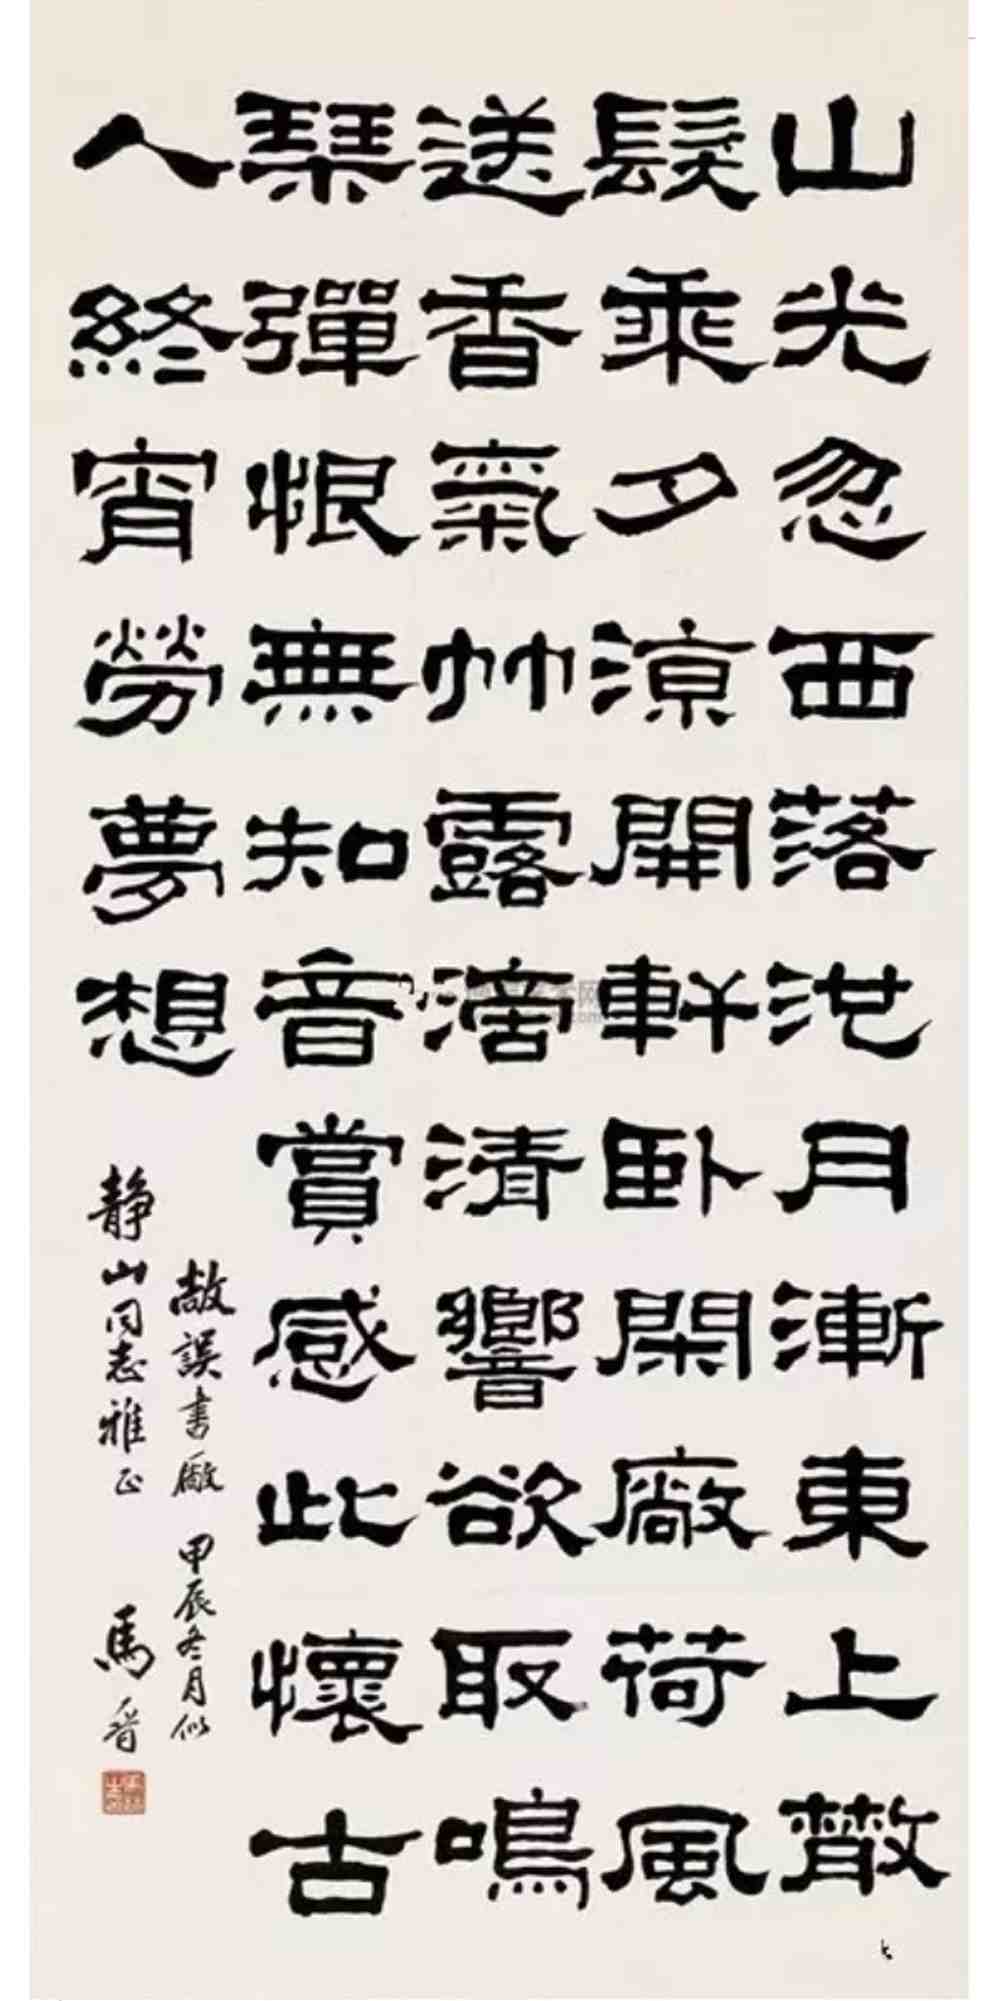 山光忽西落池月漸東上散
髮乘夕涼開軒卧閑廠荷風
送香氣竹露滴清響欲取鳴
琴彈恨無知音賞感此懷古
人終宵勞夢想
敞誤書廠 甲辰冬月似
静山同志雅正 馬晋